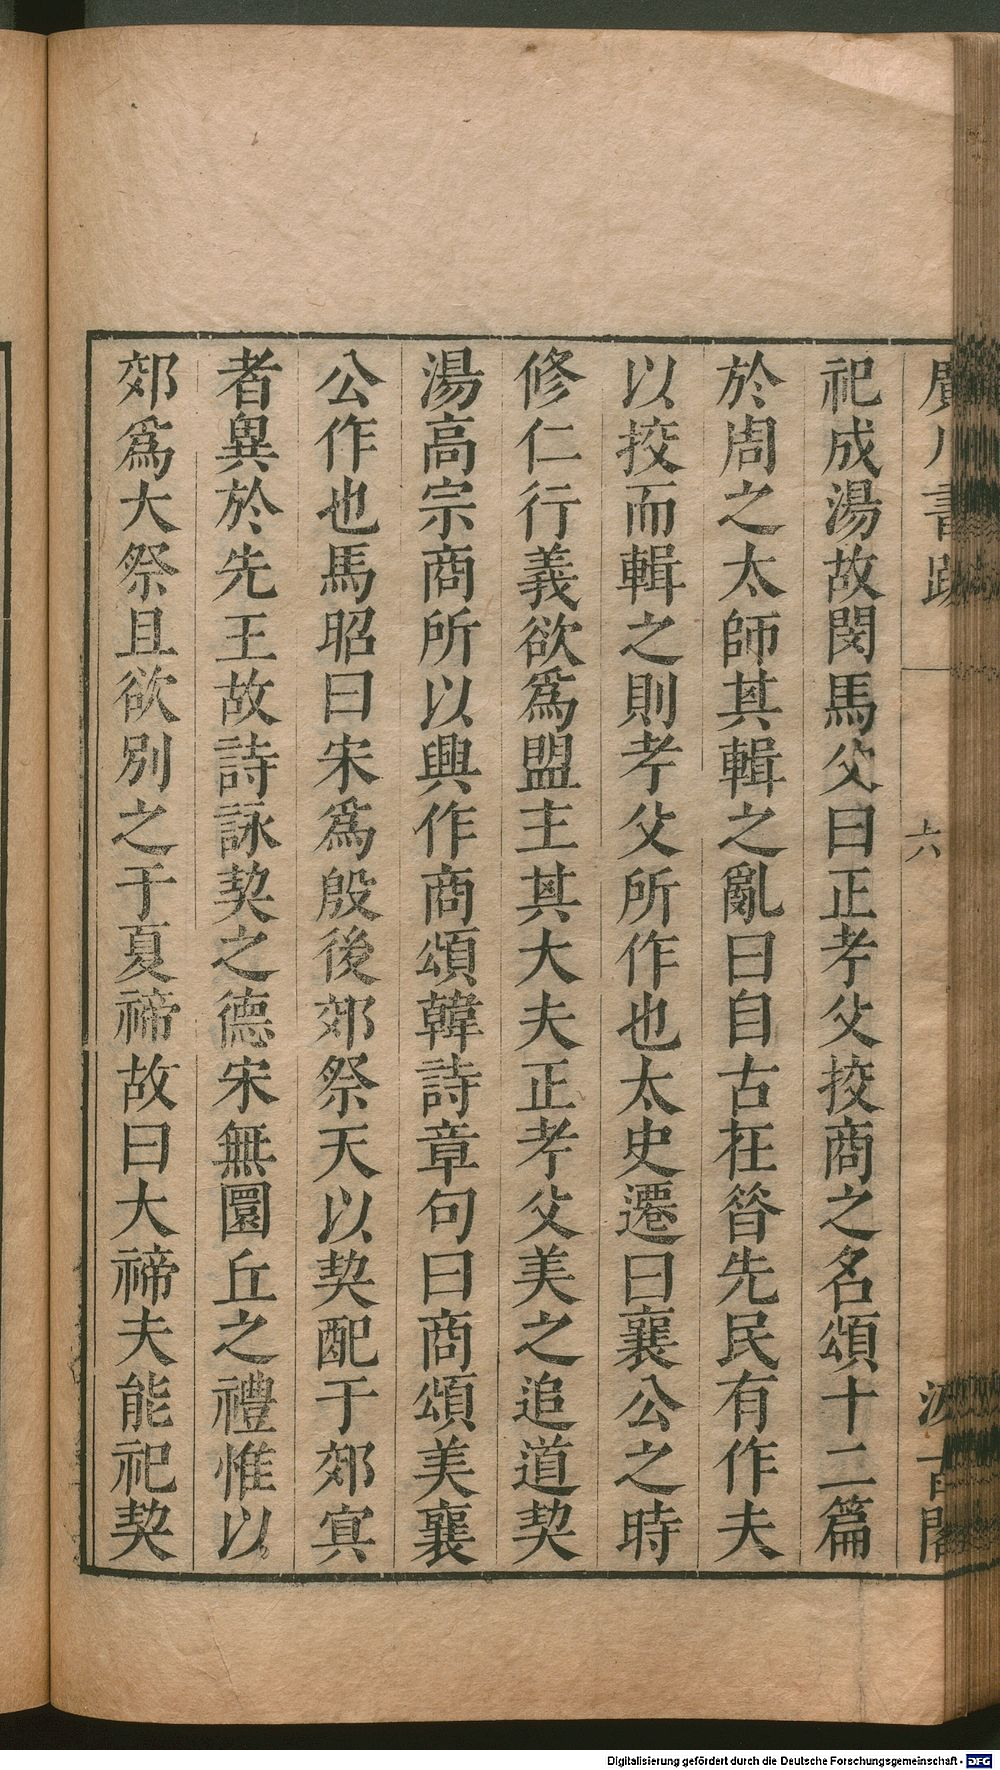 廣川書跋
六
汲古閣
祀成湯故閔馬父曰正孝父挍商之名頌十二篇
於周之太師其輯之亂曰自古在昝先民有作夫
以挍而輯之則孝父所作也太史遷曰襄公之時
修仁行義欲為盟主其大夫正孝父美之追道契
湯高宗商所以興作商頌韓詩章句曰商頌美襄
公作也馬昭曰宋為殷後郊祭天以契配于郊㝠
者異於先王故詩詠契之德宋無圜丘之禮惟以
郊為大祭且欲別之于夏禘故曰大禘夫能祀契
Digitalisierung gefördert durch die Deutsche Forschungsgemeinschaft - DFG